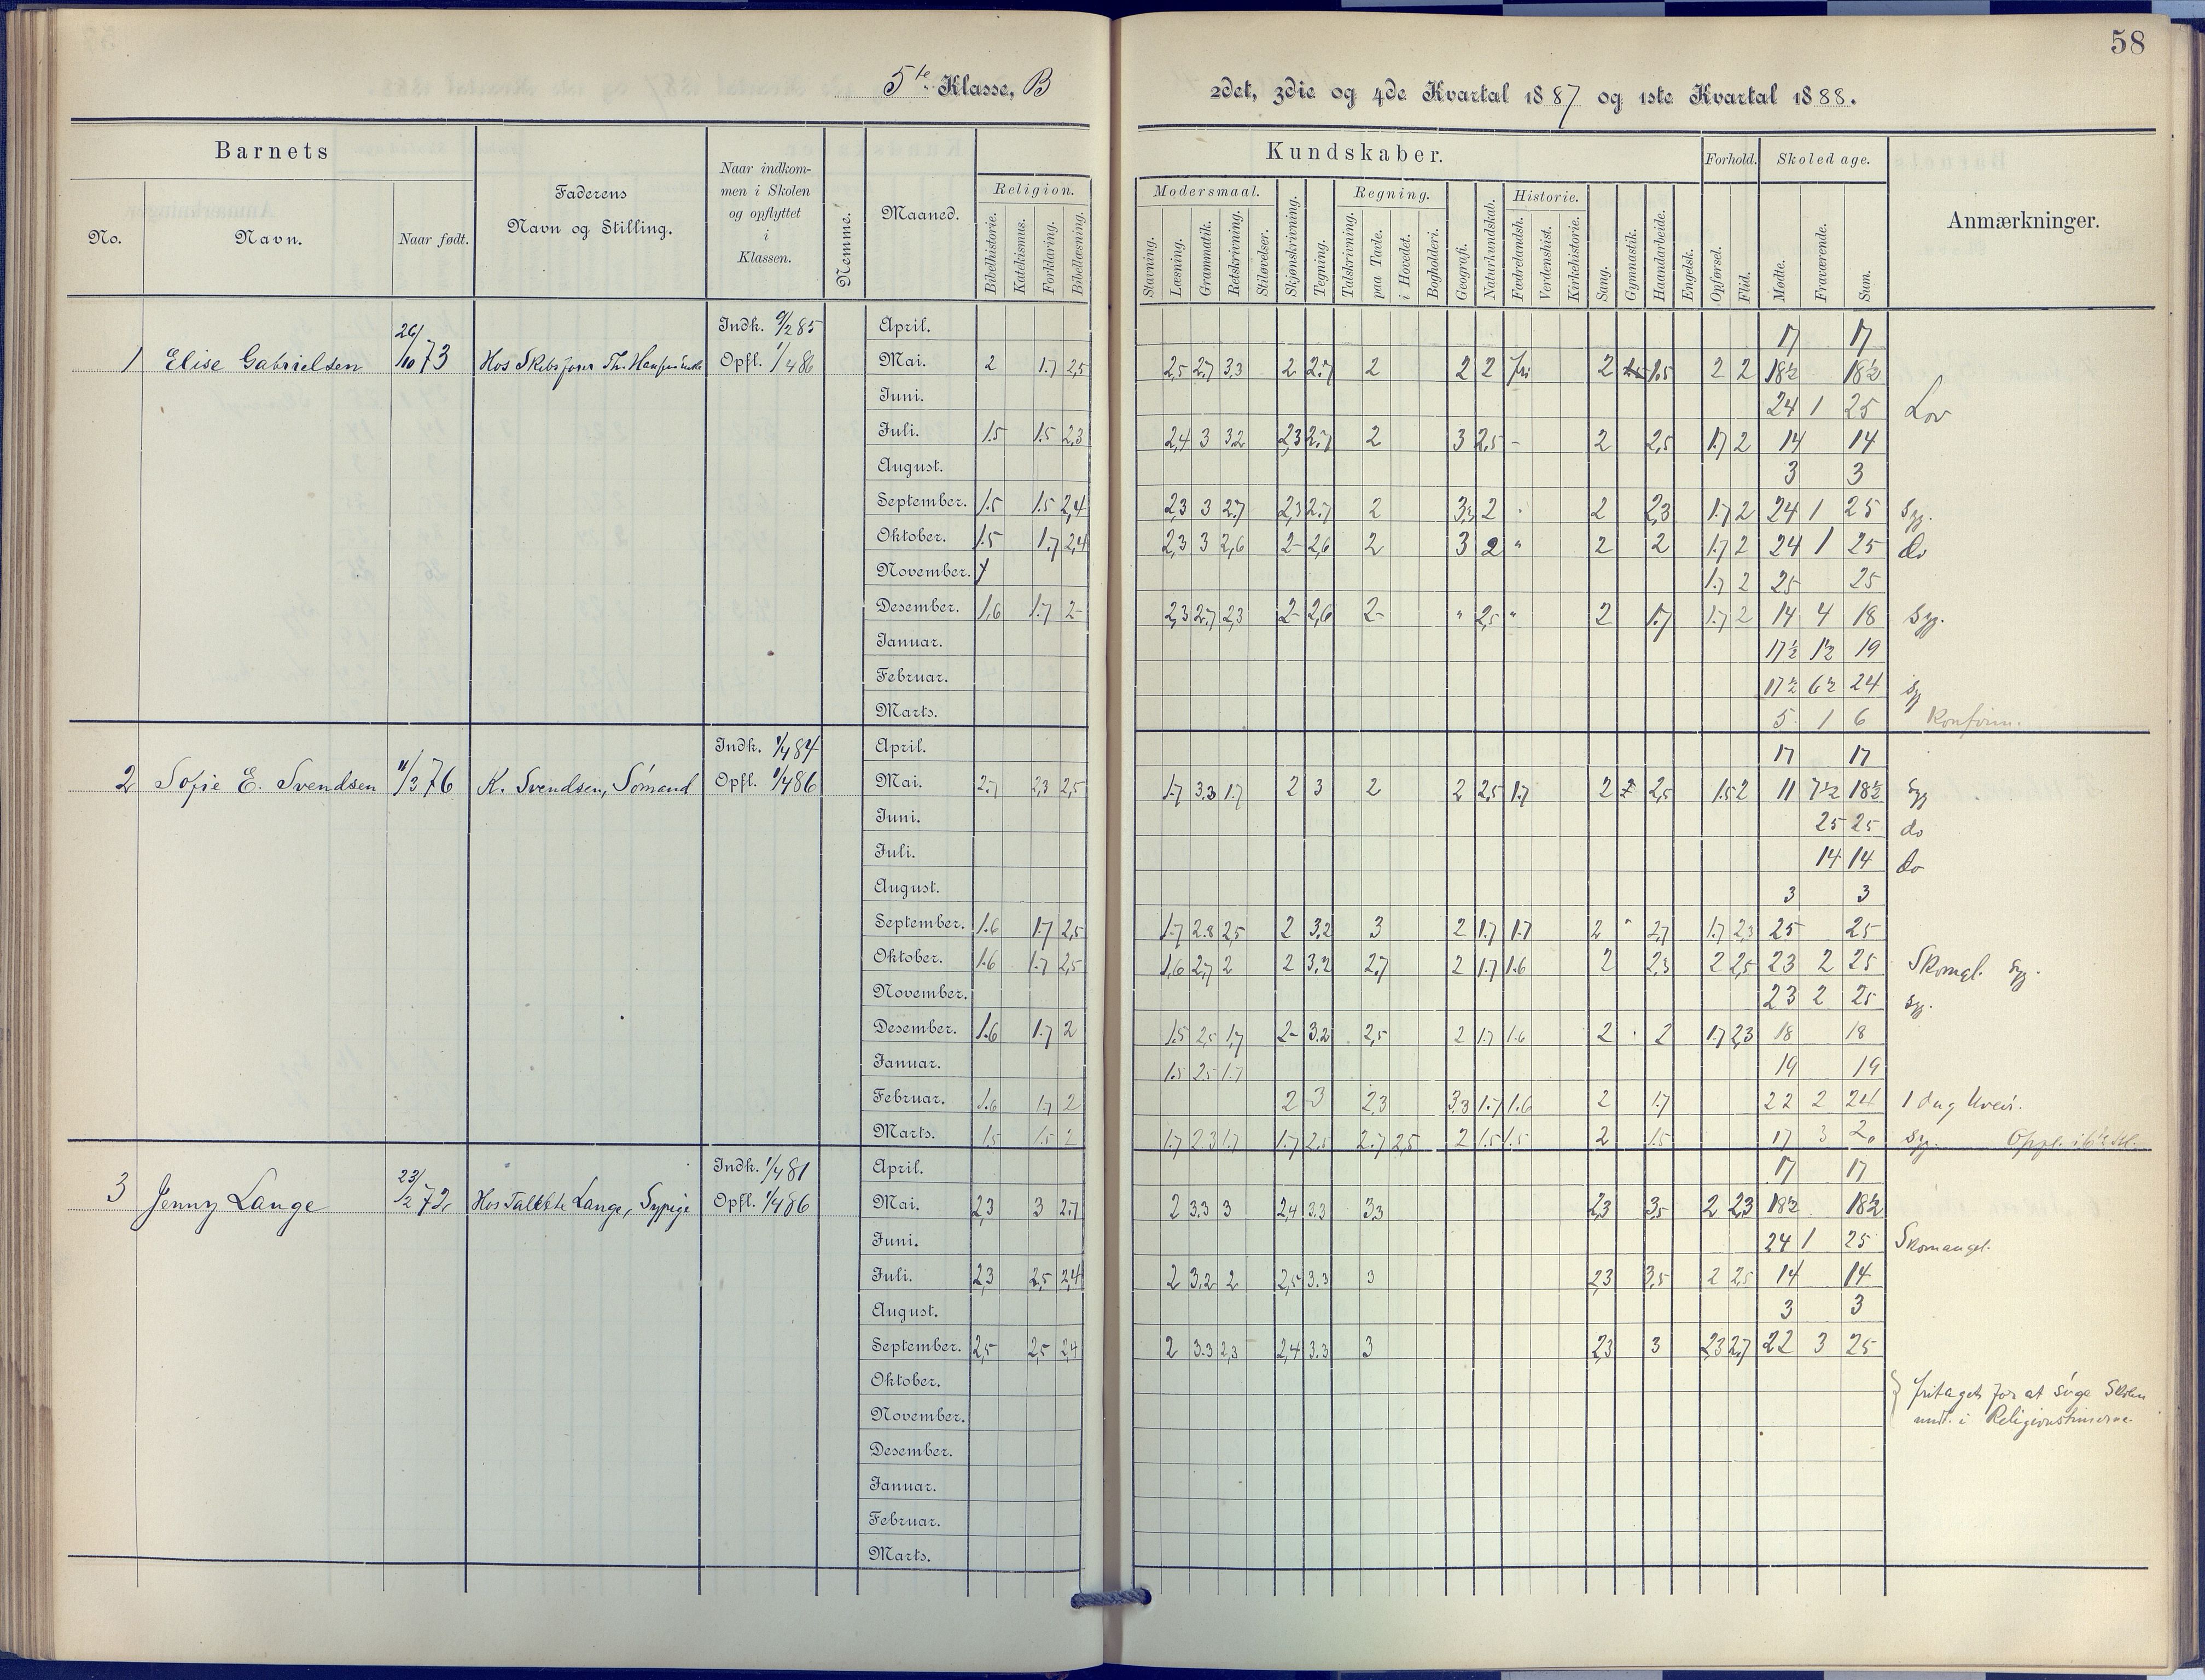 58
5te Klasse, B
2det, 3die og 4de Kvartal 1887 og 1ste Kvartal 1888.
Barnets
No.
Navn.
Naar født.
Faderens
Navn og Stilling.
Naar indkom-
men i Skolen
og opflyttet
i
Klassen.
Nemme.
Maaned.
Kundskaber.
Religion.
Bibelhistorie.
Katekismus.
Forklaring.
Bibellæsning.
Modersmaal.
Stavning.
Læsning.
Grammatik.
Retskrivning.
Stiløvelser.
Skjønskrivning.
Tegning.
Regning.
Talskrivning.
paa Tavle.
i Hovedet.
Bogholderi.
Geografi.
Naturkundskab.
Historie.
Fædrelandsh.
Verdenshist.
Kirkehistorie.
Sang.
Gymnastik.
Haandarbeide.
Engelsk.
Forhold.
Opførsel.
Flid.
Skoledage.
Mødte.
Fraværende.
Sum.
Anmærkninger.
1 Elise Gabrielsen 26/10 73 Hos Skibsfører Th.
Indk. 85
Opfl. 1/4 86
April. 17 17
Mai. 2 1.7 2,5 2,5 2.7 3.3 2 2.7 2 2 2 fri 2 1.5 2 2 18½ 18½
Juni. 24 1 25 Lov
Juli. 1.5 1.5 2,3 2,4 3 3.2 2,3 2.7 2 3 2,5 - 2 2,5 1.7 2 14 14
August. 3 3
September. 1.5 1.5 2,4 2,3 3 2.7 2,3 2.7 2 3,3 2 2 2,3 1.7 2 24 1 25 Syg.
Oktober. 1.5 1.7 2,4 2,3 3 2,6 2- 2,6 2 3 2 " 2 2 1.7 2 24 1 25 do
November. 1.7 2 25 25
Desember. 1.6 1.7 2- 2,3 2.7 2,3 2- 2,6 2- " 2,5 " 2 1.7 1.7 2 14 4 18 Syg.
Januar. 17½ 1½ 19
Februar. 17½ 6½ 24 Syg
Marts. 5 1 6 Konfirm.
2 Sofie E. Svendsen 11/3 76 K. Svendsen, Sømand
Indk. 1/4 84
Opfl. 1/4 86
April. 17 17
Mai. 2.7 2,3 2,5 1.7 3.3 1.7 2 3 2 2 2,5 1.7 2 2 2,5 1.5 2 11 7½ 18½ Syg
Juni. 25 25 do
Juli. 14 14 do
August. 3 3
September. 1.6 1.7 2,5 1.7 2.8 2,5 2 3,2 3 2 1.7 1.7 2 " 2,7 1.7 2,3 25 25
Oktober. 1.6 1.7 2,5 1,6 2,7 2 2 3,2 2,7 2 1.7 1.6 2 2,3 2 2,5 23 2 25 Skomgl. Syg.
November. 23 2 25 Syg.
Desember. 1.6 1.7 2 1.5 2,5 1,7 2- 3.2 2,5 2 1.7 1.6 2 2 1.7 2,3 18 18
Januar. 1.5 2.5 1.7 19 19
Februar. 1.6 1.7 2 2 3 2,3 3,3 1.7 1.6 2 1.7 22 2 24 1 dag Uveir.
Marts. 1.5 1.5 2 1.7 2.3 1.7 1.7 2.5 2.7 2,5 2 1.5 1.5 2 1.5 17 3 20 Syg.
3 Jenny Lange 23/2 72 Hos Lange, Sypige
Indk. 1/4 81
Opfl. 1/4 86
April. 17 17
Mai. 2,3 3 2.7 2 3.3 3 2,4 3.3 3,3 2,3 3,5 2 2,3 18½ 18½
Juni. 24 1 25 Skomangel.
Juli. 2,3 2,5 2,4 2 3,2 2 2,5 3.3 3 2,3 3,5 2 2,5 14 14
August. 3 3
September. 2,5 2,5 2,4 2 3.3 2,3 2,4 3.3 3 2,3 3 2,3 2,7 22 3 25
Oktober. fritaget for at søge Skolen
November. undt. i Religionstimerne
Desember.
Januar.
Februar.
Marts.